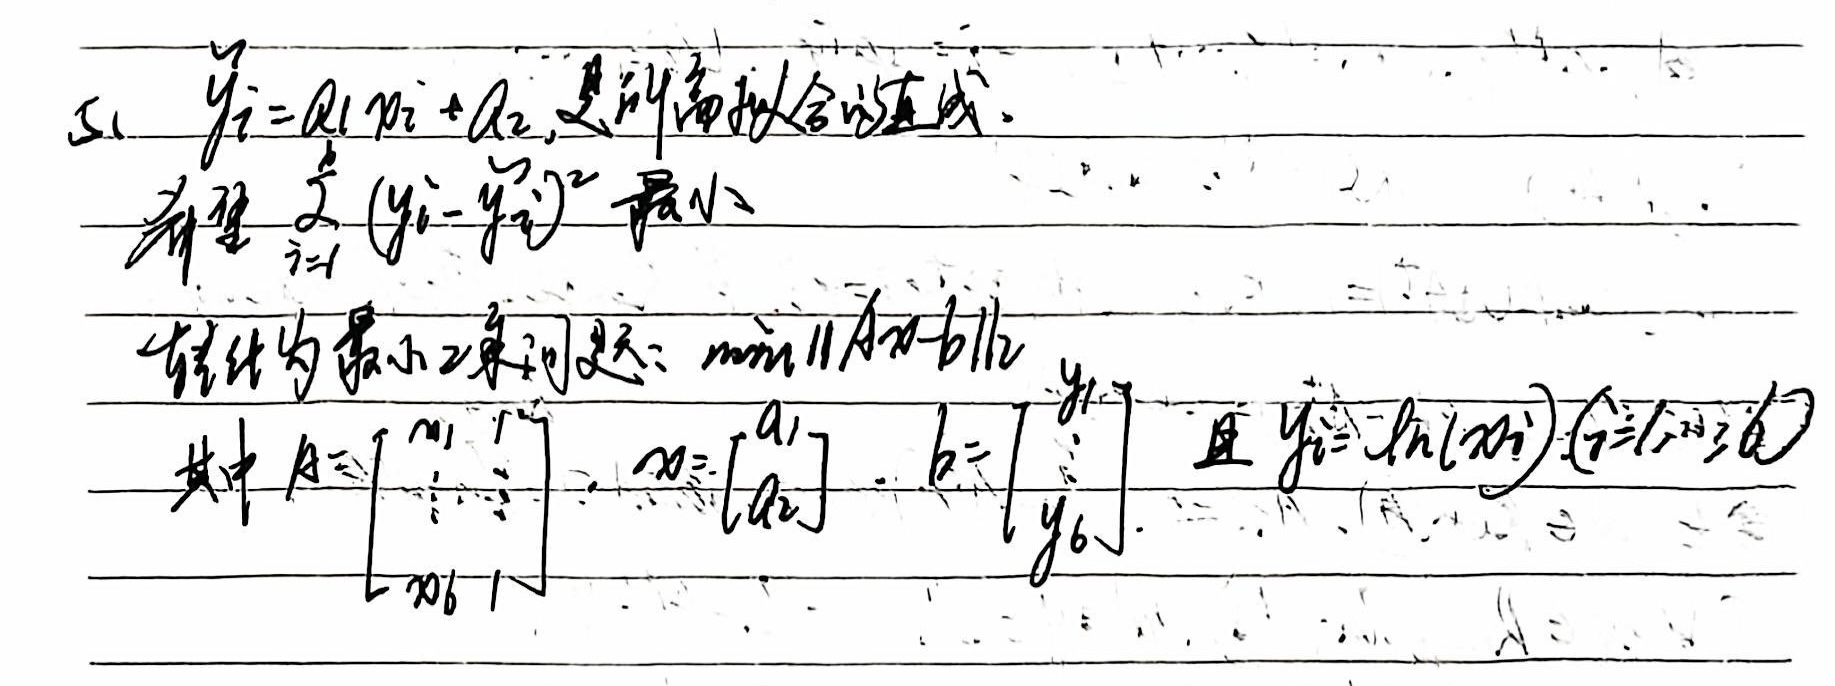 5. ỹi = a1 xi + a2, 是所需拟合的直线.
希望 Σ_{i=1}^{6} (yi - ỹi)² 最小
转化为最小2乘问题: min||Ax-b||2
其中 A = [x1 1; ⋮ ⋮; x6 1]. x = [a1; a2]. b = [y1; ⋮; y6]. 且 yi = ln(xi) (i=1,…,6)